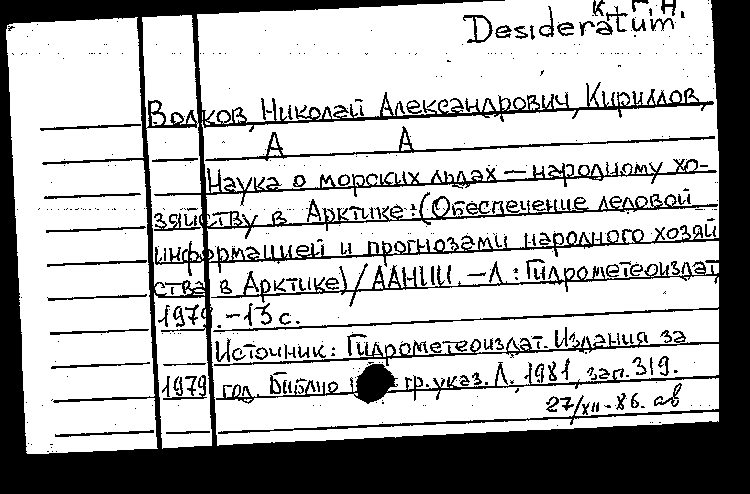 К. Г. Н.
Desideratum.
Волков, Николай Александрович, Кириллов,
А А
Наука о морских льдах — народному хо-
зяйству в Арктике: (Обеспечение ледовой
информацией и прогнозами народного хозяй
ства в Арктике) / ААНИИ. — Л.: Гидрометеоиздат,
1979. — 15 с.
Источник: Гидрометеоиздат. Издания за
1979 год. Библио гр. указ. Л., 1981, зап. 319.
27/XII - 86. ав